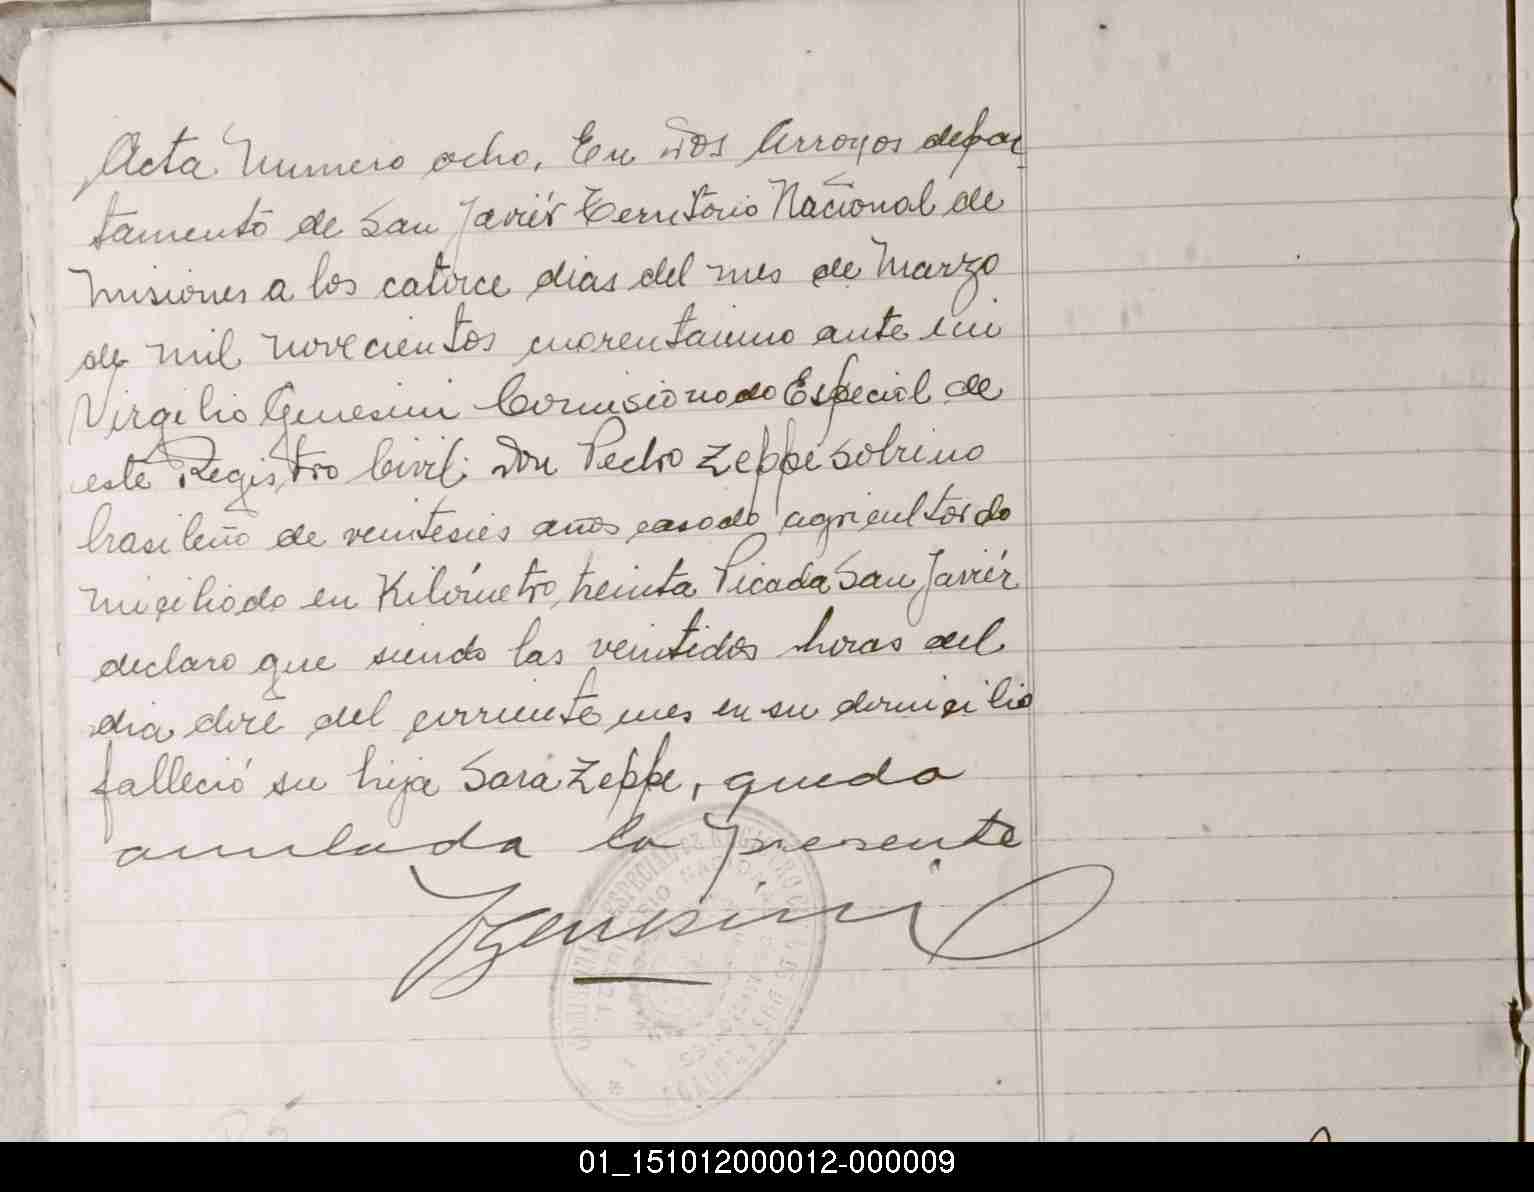 Acta Numero ocho. En Dos Arroyos depar
tamento de San Javiér Territorio Nacional de
Misiones a los catorce dias del mes de Marzo
de mil novecientos cuarentaiuno ante mi
Virgilio Genesini Comisionado Especial de
este Registro Civil; Don Pedro Zeppe sobrino
brasileño de veinteseis años casado agricultor do
miciliado en Kilómetro treinta Picada San Javiér
declaro que siendo las veintidos horas del
dia doce del corriente mes en su domicilio
falleció su hija Sara Zeppe, queda
anulada la presente
VGenesini
REGISTRO CIVIL DE DOS ARROYOS
01_151012000012-000009